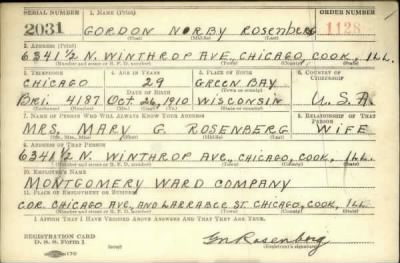 SERIAL NUMBER 1. NAME (Print) ORDER NUMBER
2031 GORDON NORBY ROSENBERG 1128
(First) (Middle) (Last)
2. ADDRESS (Print)
6341 1/2 N. WINTHROP AVE, CHICAGO, COOK, ILL.
(Number and street or R. F. D. number) (Town) (County) (State)
3. TELEPHONE 4. AGE IN YEARS 5. PLACE OF BIRTH 6. COUNTRY OF CITIZENSHIP
CHICAGO 29 GREEN BAY
DATE OF BIRTH
Bri. 4187 Oct 26, 1910 WISCONSIN U.S.A.
(Exchange) (Number) (Mo.) (Day) (Yr.) (State or country)
7. NAME OF PERSON WHO WILL ALWAYS KNOW YOUR ADDRESS 8. RELATIONSHIP OF THAT PERSON
MRS. MARY G. ROSENBERG WIFE
(Mr., Mrs., Miss) (First) (Middle) (Last)
9. ADDRESS OF THAT PERSON
6341 1/2 N. WINTHROP AVE., CHICAGO, COOK, ILL.
(Number and street or R. F. D. number) (Town) (County) (State)
10. EMPLOYER'S NAME
MONTGOMERY WARD COMPANY
11. PLACE OF EMPLOYMENT OR BUSINESS
COR. CHICAGO AVE., AND LARRABEE ST. CHICAGO, COOK, ILL
(Number and street or R. F. D. number) (Town) (County) (State)
I AFFIRM THAT I HAVE VERIFIED ABOVE ANSWERS AND THAT THEY ARE TRUE.
REGISTRATION CARD GN Rosenberg
D. S. S. Form 1 (Registrant's signature)